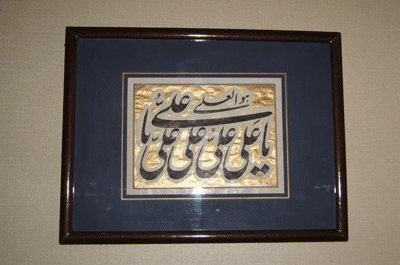 هو العلی
یا علی علی علی علی علی یا